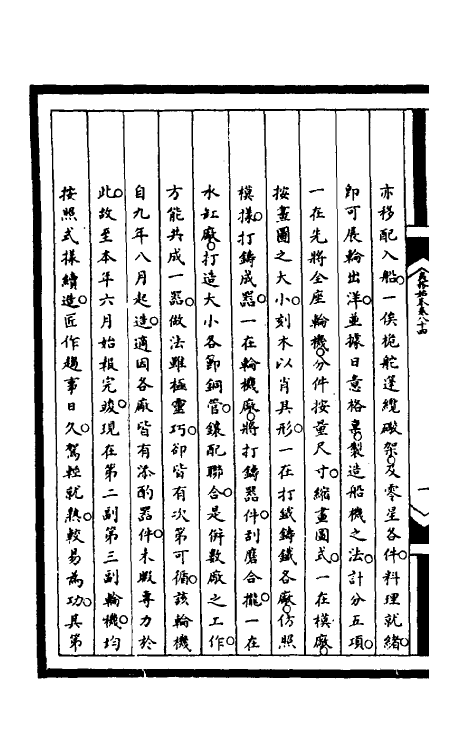 亦移配入船。一俟桅舵蓬纜礟架。及零星各件。料理就緒。
即可展輪出洋。並據日意格稟。製造船機之法。計分五項。
一在先將全座輪機。分件按量尺寸。縮畫圖式。一在模廠。
按畫圖之大小。刻木以肖其形。一在打鐵鑄鐵各廠。仿照
模樣。打鑄成器。一在輪機廠。將打鑄器件。刮磨合攏。一在
水缸廠。打造大小各節銅管。鑲配聯合。是倂數廠之工作。
方能共成一器。做法雖極靈巧。卻皆有次第可循。該輪機
自九年八月起造。適因各廠皆有添酌器件。未暇專力於
此。故至本年六月始報完竣。現在第二副第三副輪機。均
按照式樣續造。匠作趨事日久。駕輕就熟。較易為功。其第